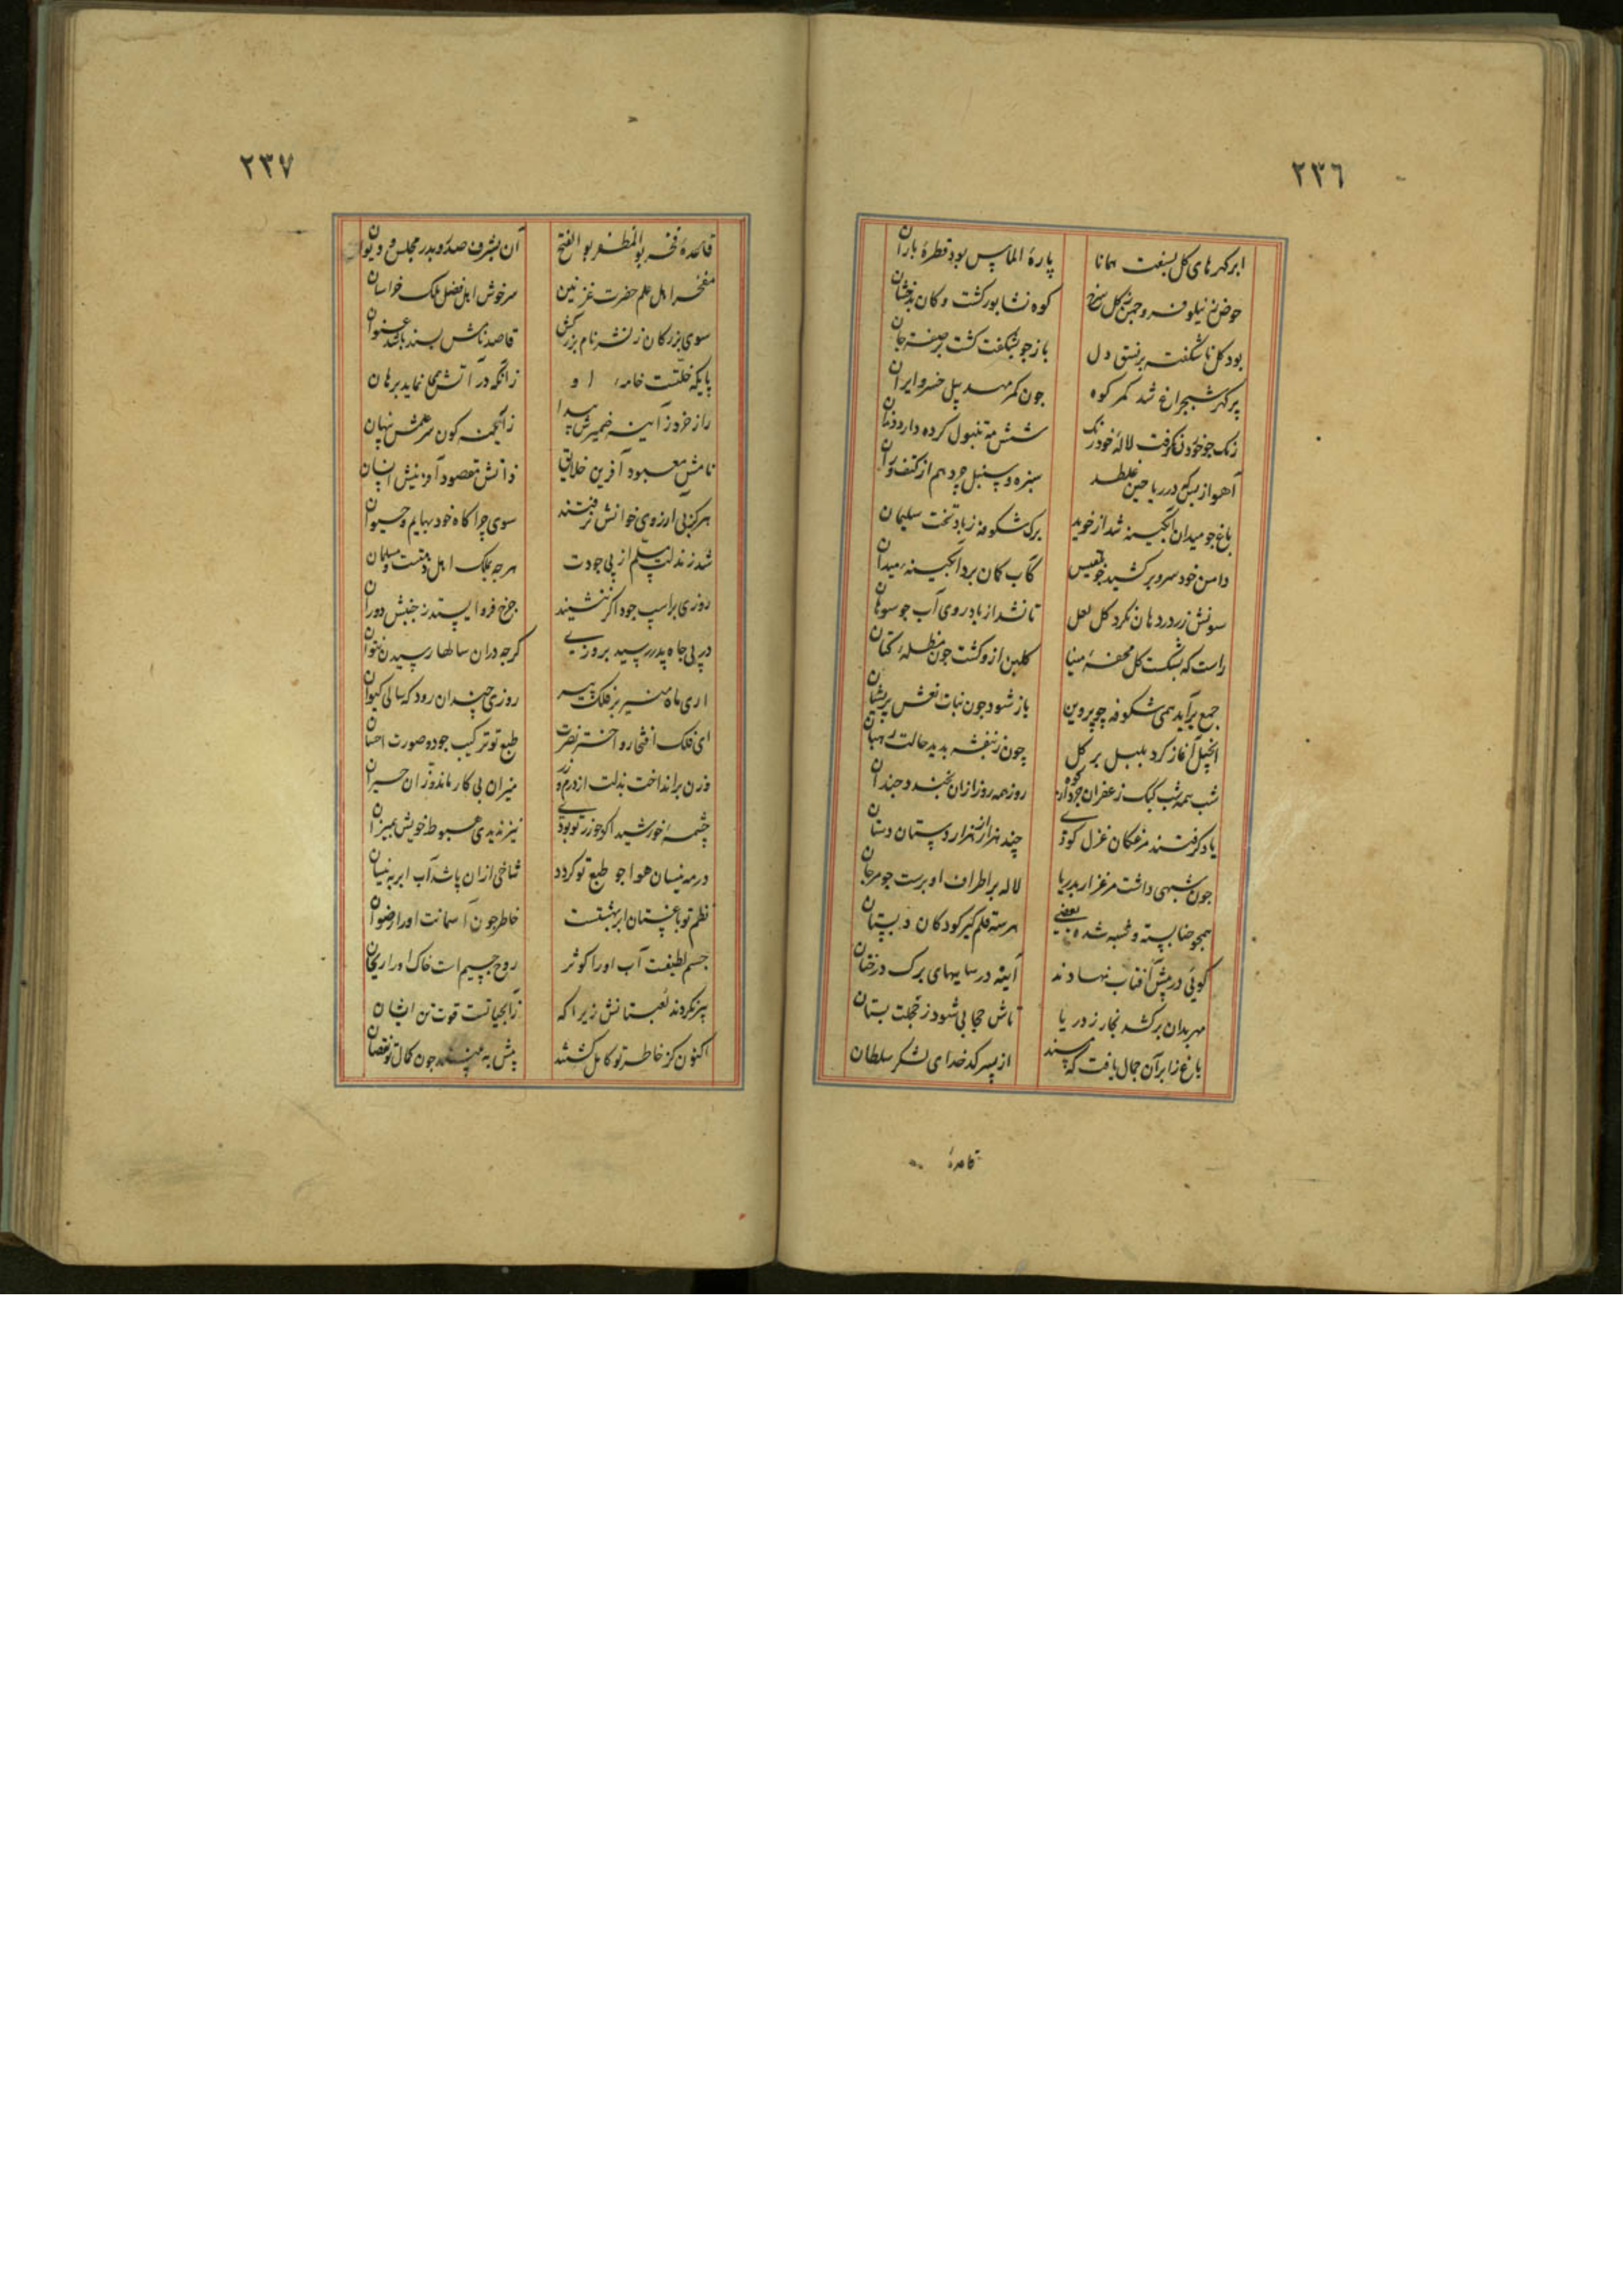 ٢٣٦
ابر کهرهای کل بسفت همانا پارهٔ الماس بود قطرهٔ باران
حوض ز نیلوفر و چمن ز کل سرخ کوه نشابور کشت و کان بدخشان
بود کل ناشکفته بر نسق دل باز جو بشکفت کشت بر صفت جان
پر کهر شبچراغ شد کمر کوه جون کمر مهد پیل خسرو ایران
رنک جو خود نکرفت لالهٔ خودرنک شش مه تنبول کرده دارد دندان
آهو از بس که در ریاحین غلطد سبزه و سنبل چرد هم از کتف و ران
باغ جو میدان آبکینه شد از خوید برک شکوفه ز باد تخت سلیمان
دامن خود سرو برکشید جو بلقیس کاب کمان برد آبکینه میدان
سونش زر در دهان نکرد کل لعل تا نشد از باد روی آب جو سوهان
راست که بشکست کل محفهٔ مینا کلبن ازو کشت جون مظلهٔ کتان
جمع برآید همی شکوفه چو پروین باز شود جون بنات نعش پریشان
انجیل آغاز کرد بلبل بر کل چون ز بنفشه بدید حالت رهبان
شب همه شب کبک زعفران خورد از کوه روز همه روز ازان بخندد چندان
یاد کرفتند مرغکان غزل کوی چند هزار از هزار دستان دستان
جون شبهی داشت مرغزار بدریا لاله بر اطراف او برست جو مرجان
همجو حنا بسته وشبه شده بعضی هر سه قلم کیر کودکان دبستان
کوئی در پیش آفتاب نهادند آینه در سایهای برک درختان
مهر بدان برکشد بخار ز دریا تاش حجابی شود ز خجلت بستان
باغ ز ابر آن جمال یافت که مسند از پسر کدخدای لشکر سلطان
قاعدهٔ
٢٣٧
قاعدهٔ فخر بوالمظفر بوالفتح آن بشرف صدر و بدر مجلس و دیوان
مفخر اهل علم حضرت غزنین سرخوش اهل فضل ملک خراسان
سوی بزرکان ز نشر نام بزرکش قاصد ناشر بسنده باشد عنوان
پایکه خلتست خامهٔ او زانکه در آتش همی نماید برهان
راز خرد ز آینهٔ ضمیرش پیدا ز انجمن کون سر همتش نهان
نامش معبود آفرین خلایق ذاتش مقصود آفرینش انسان
هرکز بی ارزوی خوانش نرفتند سوی چراکاه خود بهایم و حیوان
شد زندلت یتیم از پی جودت هرجه بملک اهل ذمتست و مسلمان
روزی بر اسب جود اکر ننشیند جرخ فرو ایستد ز جنبش دوران
در پی جاه پدر رسید بروزی کرجه در ان سالها رسیدن نتوان
اری ماه منیر بر فلک پیر روزی چندان رود که سالی کیوان
ای فلک افتخار و اختر نصرت طبع تو ترکیب جود و صورت احسان
وزن برانداخت بذلت از درم و زر میزان بی کار ماند و زان حیران
چشمهٔ خورشید اکر جو زر تو بودی نیز ندیدی هبوط خویش بمیزان
در مه نیسان هوا جو طبع تو کردد شاخی ازان باشد آب ابر به نیسان
نظم تو باغیست ان بهشتست خاطر جون آسمانت او را رضوان
جسم لطیفت آب او را کوثر روح جسیم است خاک او را ریحان
پیر نکردند لعبتانش زیرا که زآبحیاتست قوت تن ایشان
اکنون کز خاطر تو کامل کشتند پیش به نبینند جون کمال تو نقصان